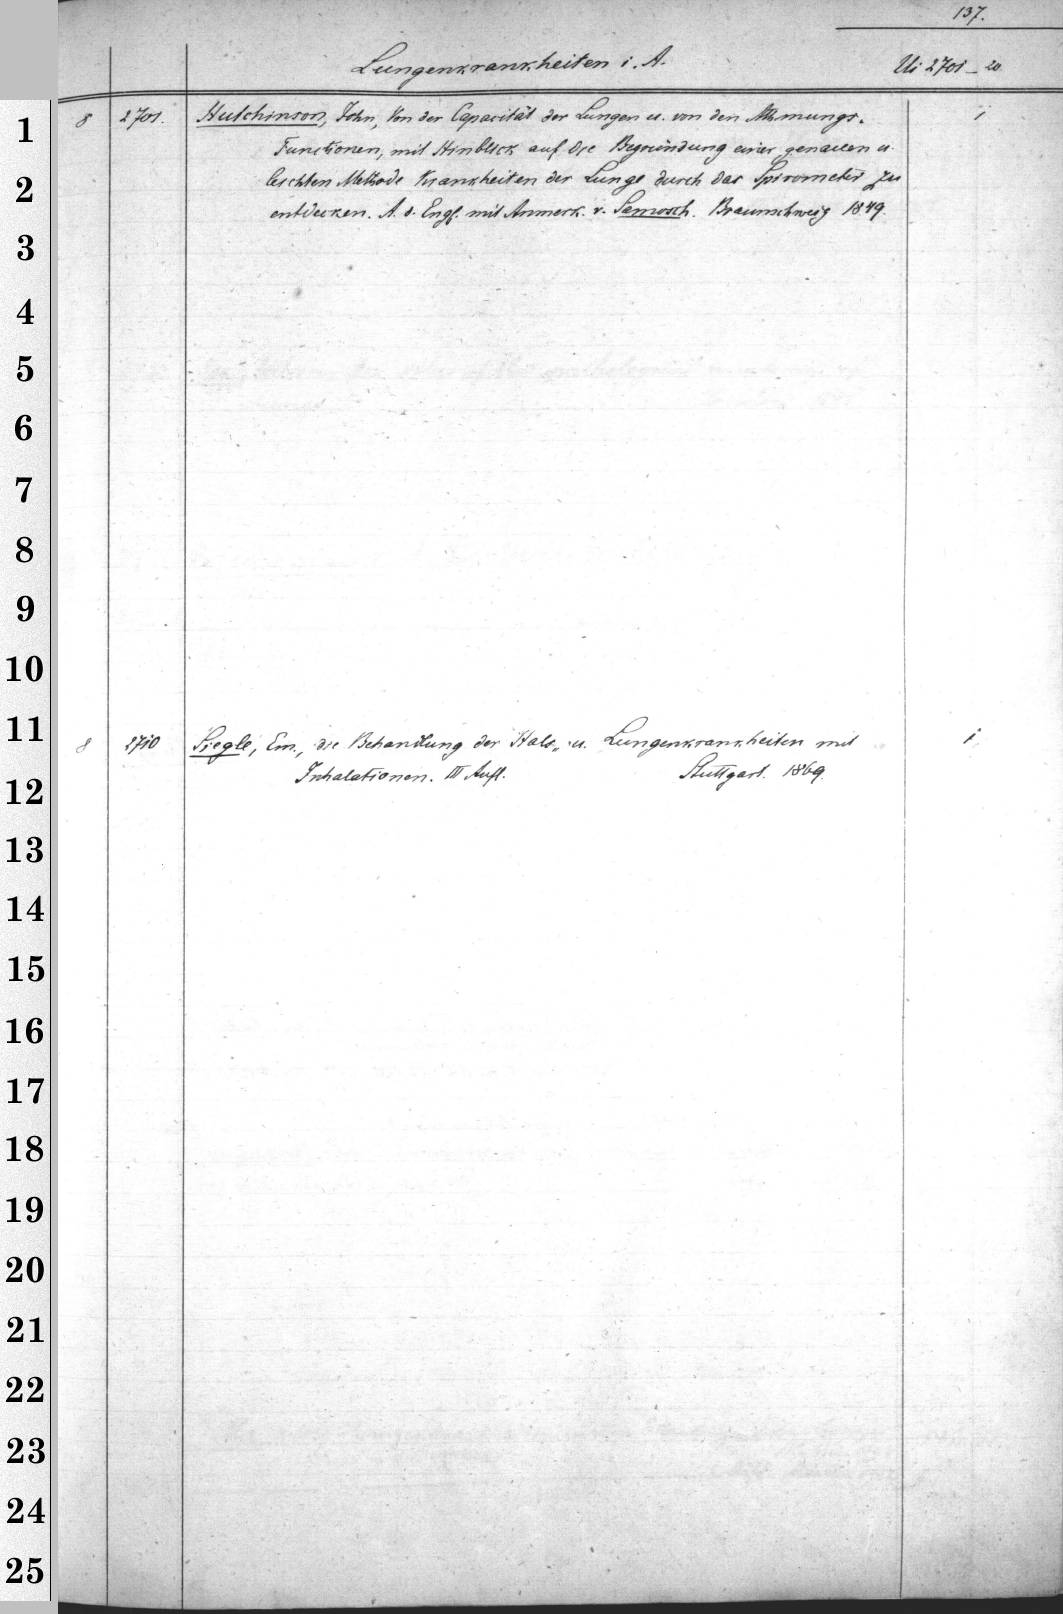 137.
Lungenkrankheiten i. A.
Ui 2701-20
8 2701. Hutchinson, John, Von der Capacität der Lungen u. von den Athmungs- 1
Functionen, mit Hinblick auf die Begründung einer genauen u.
leichten Methode Krankheiten der Lunge durch das Spirometer zu
entdecken. A. d. Engl. mit Anmerk. v. Samosch. Braunschweig 1849.
8 2710 Siegle, Em., die Behandlung der Hals- u. Lungenkrankheiten mit 1
Inhalationen. III Aufl. Stuttgart. 1869.
1
2
3
4
5
6
7
8
9
10
11
12
13
14
15
16
17
18
19
20
21
22
23
24
25